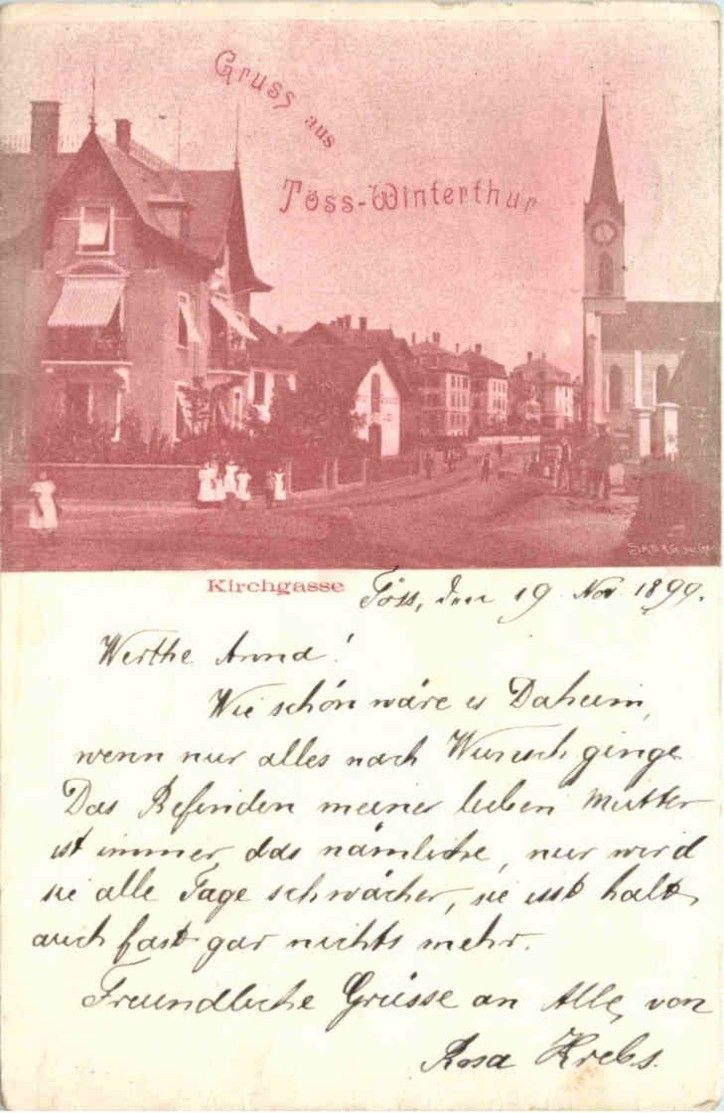 Gruss
aus
Töss-Winterthur
Kirchgasse
Töss, den 19. Nov. 1899.
Werthe Anna!
Wie schön wäre es Daheim,
wenn nur alles nach Wunsch ginge.
Das Befinden meiner lieben Mutter
ist immer das nämliche, nur wird
sie alle Tage schwächer, sie isst halt
auch fast gar nichts mehr.
Freundliche Grüsse an Alle, von
Rosa Krebs.